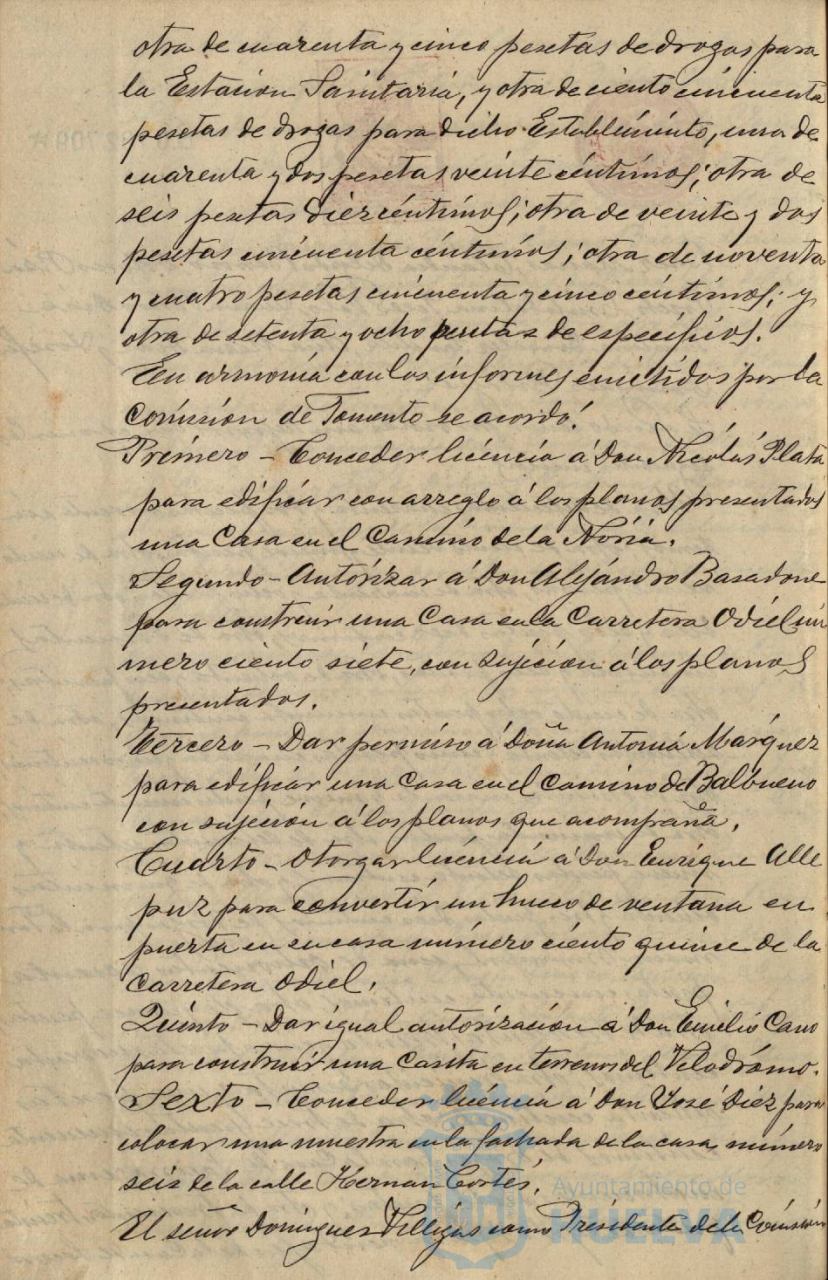 otra de cuarenta y cinco pesetas de drogas para
la Estacion Sanitaria, y otra de ciento cincuenta
pesetas de drogas para dicho Establiminto, una de
cuarenta y dos pesetas veinte céntimos; otra de
seis pesetas diez céntimos; otra de veinte y dos
pesetas cincuenta céntimos; otra de noventa
y cuatro pesetas cincuenta y cinco céntimos; y
otra de setenta y ocho pesetas de especificos.
En armonía con los informes emitidos por la
Comisión de Fomento se acordó:
Primero - Conceder licencia á Don Nicolás Plata
para edificar con arreglo á los planos presentados
una Casa en el Camino de la Noria.
Segundo - Autorizar á Don Alejandro Basadone
para construir una Casa en la Carretera Odiel nú
mero ciento siete, con sujecion á los planos
presentados.
Tercero - Dar permiso á Doña Antonia Márquez
para edificar una Casa en el Camino de Balbueno
con sujeción á los planos que acompaña.
Cuarto - Otorgar licencia á Don Enrique Alle
puz para convertir un hueco de ventana en
puerta en su casa número ciento quince de la
Carretera Odiel.
Quinto - Dar igual autorización á Don Emilio Cano
para construir una Casita en terrenos del Velodrómo.
Sexto - Conceder licencia á Don José Díez para
colocar una muestra en la fachada de la casa número
seis de la calle Hernan Cortés.
El señor Dominguez Villegas como Presidente de la Comisión
Ayuntamiento de
HUELVA